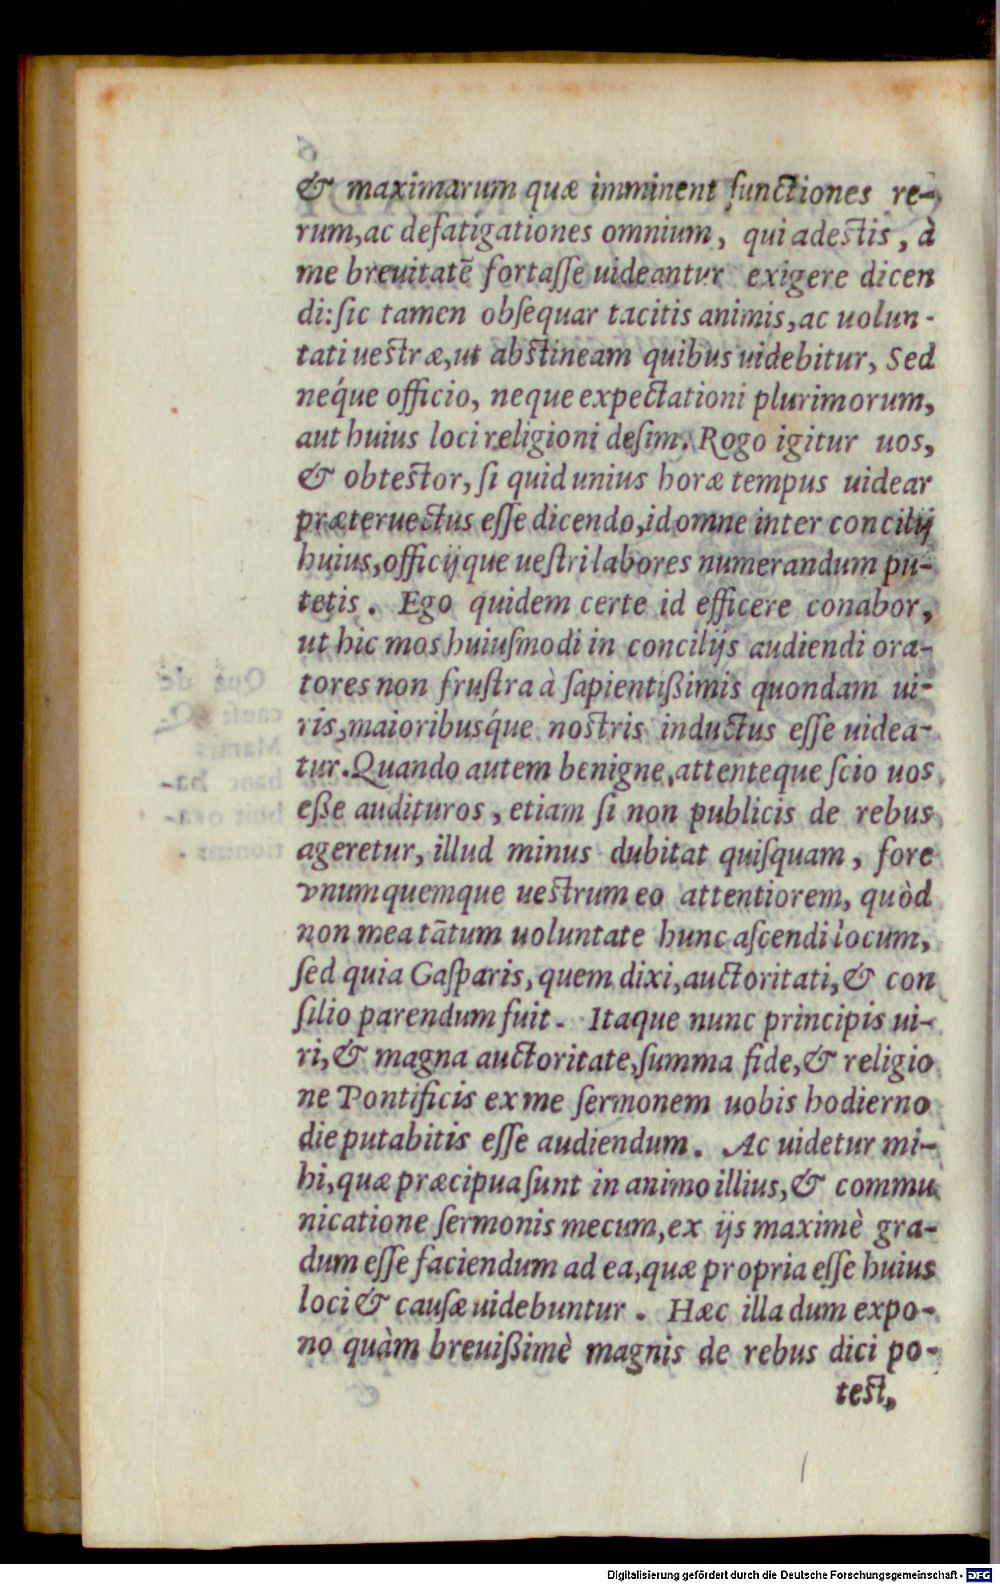 & maximarum quæ imminent functiones re-
rum,ac defatigationes omnium, qui adestis, à
me breuitatē fortaſſe uideantur exigere dicen
di:ſic tamen obſequar tacitis animis,ac uolun-
tati uestræ,ut abstineam quibus uidebitur, Sed
neq́ue officio, neque expectationi plurimorum,
aut huius loci religioni deſim. Rogo igitur uos,
& obtestor, ſi quid unius horæ tempus uidear
præteruectus eſſe dicendo,id omne inter concilij
huius,officijque ueſtri labores numerandum pu-
tetis. Ego quidem certe id efficere conabor,
ut hic mos huiuſmodi in concilijs audiendi ora-
tores non fruſtra à ſapientißimis quondam ui-
ris,maioribusq́ue nostris inductus eſſe uidea-
tur.Quando autem benigne,attenteque ſcio uos
eße audituros, etiam ſi non publicis de rebus
ageretur, illud minus dubitat quiſquam, fore
vnumquemque uestrum eo attentiorem, quòd
non mea tātum uoluntate hunc aſcendi locum,
ſed quia Gaſparis,quem dixi,auctoritati,& con
ſilio parendum fuit. Itaque nunc principis ui-
ri,& magna auctoritate,ſumma fide,& religio
ne Pontificis ex me ſermonem uobis hodierno
die putabitis eſſe audiendum. Ac uidetur mi-
hi,quæ præcipua ſunt in animo illius,& commu
nicatione ſermonis mecum,ex ijs maximè gra-
dum eſſe faciendum ad ea,quæ propria eſſe huius
loci & cauſæ uidebuntur. Hæc illa dum expo-
no quàm breuißimè magnis de rebus dici po-
test,
Digitalisierung gefördert durch die Deutsche Forschungsgemeinschaft - DFG